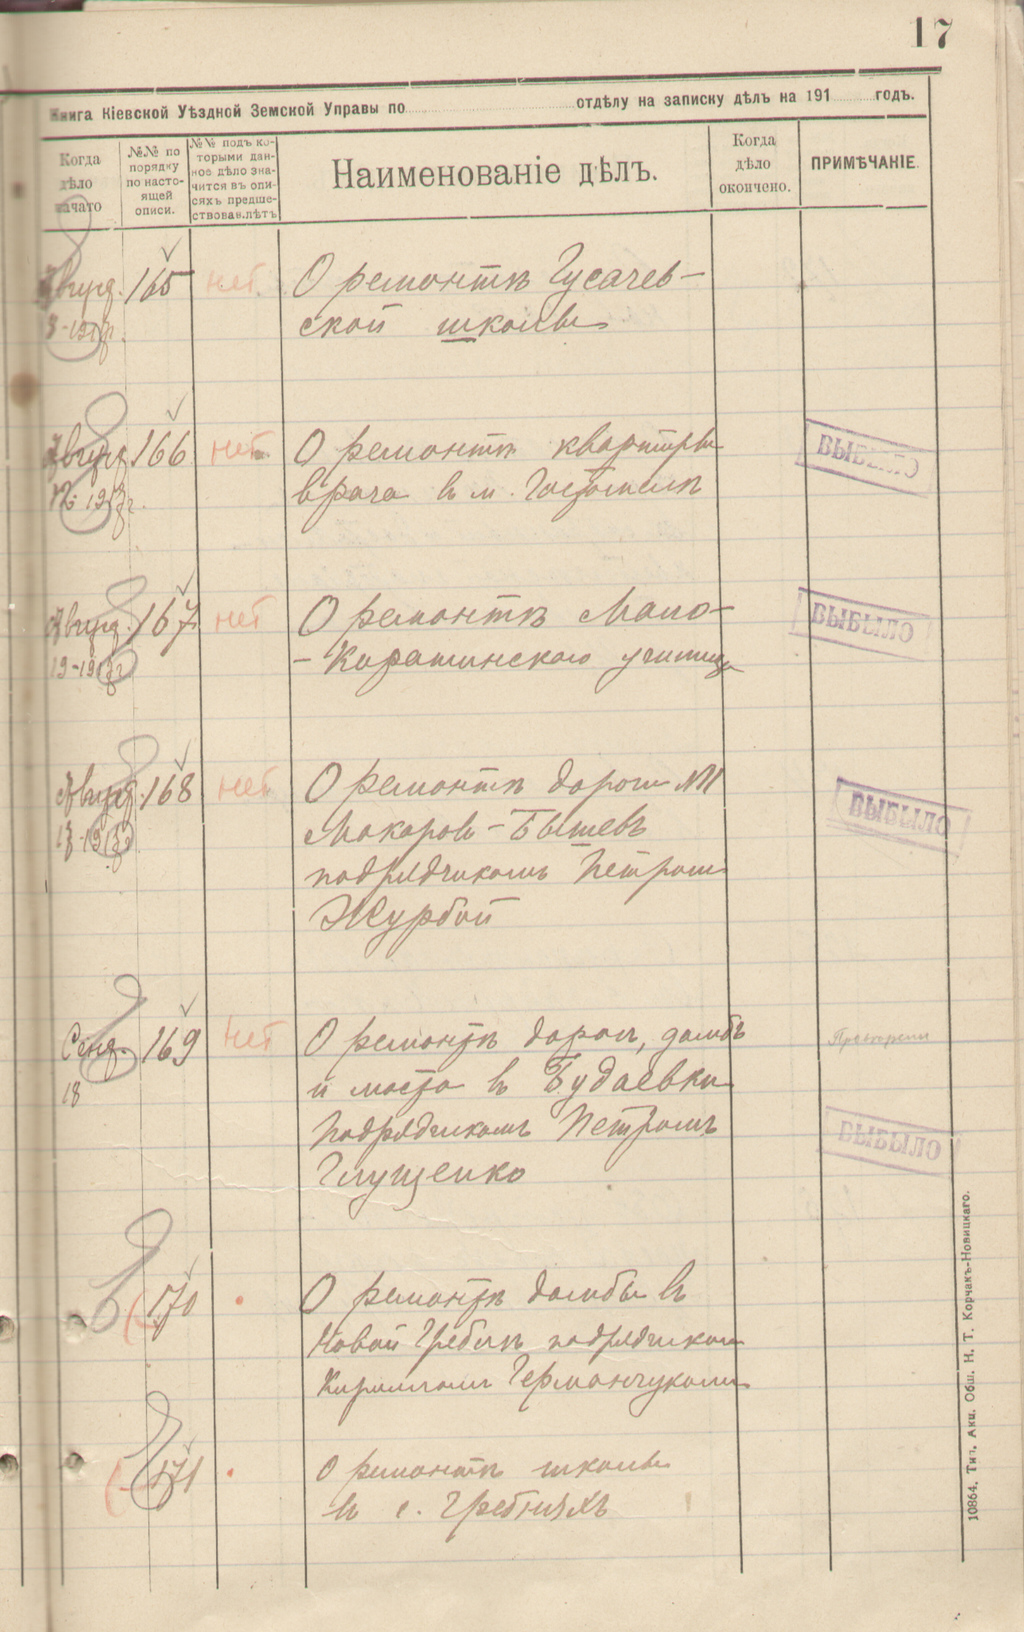 17
Книга Кіевской Уѣздной Земской Управы по отдѣлу на записку дѣлъ на 191 годъ.
Когда дѣло начато
№№ по порядку по настоящей описи.
№№ подъ ко-
торыми дан-
ное дѣло зна-
чится въ опи-
сяхъ предше-
ствовав. лѣтъ
Наименованіе дѣлъ.
Когда
дѣло
окончено.
ПРИМѢЧАНІЕ.
Август. 165 нет О ремонтѣ Гусачев-
ской школы
Август 166 нет О ремонтѣ квартиры ВЫБЫЛО
врача в м. Гостомелѣ
Август. 167 нет О ремонтѣ Мало- ВЫБЫЛО
19-1917г. -Каратинского училища
Август. 168 нет О ремонтѣ дороги ВЫБЫЛО
Макаров-Бышевъ
подрядчикомъ Петром
Журбой
Сент. 169 нет О ремонтѣ дорог, дамбъ
18 и моста в Будаевки
подрядчикомъ Петромъ ВЫБЫЛО
Глущенко
170 О ремонтѣ дамбы в
Новой Гребли подрядчиком
Кириллом Германчуком
171 О ремонтѣ школы
в с. Гребняхъ
10864. Тип. Акц. Общ. Н. Т. Корчакъ-Новицкаго.